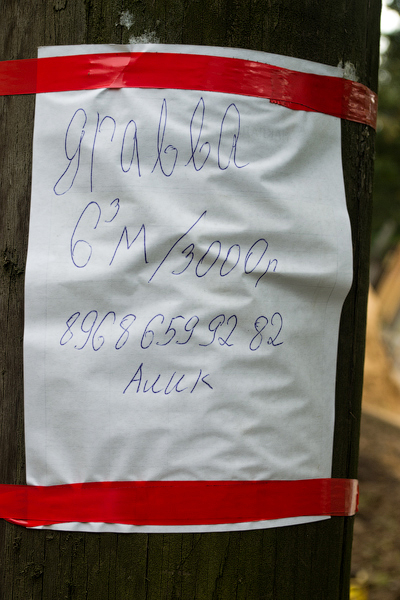 дравва
6³м/3000р
8968 659 92 82
Алик